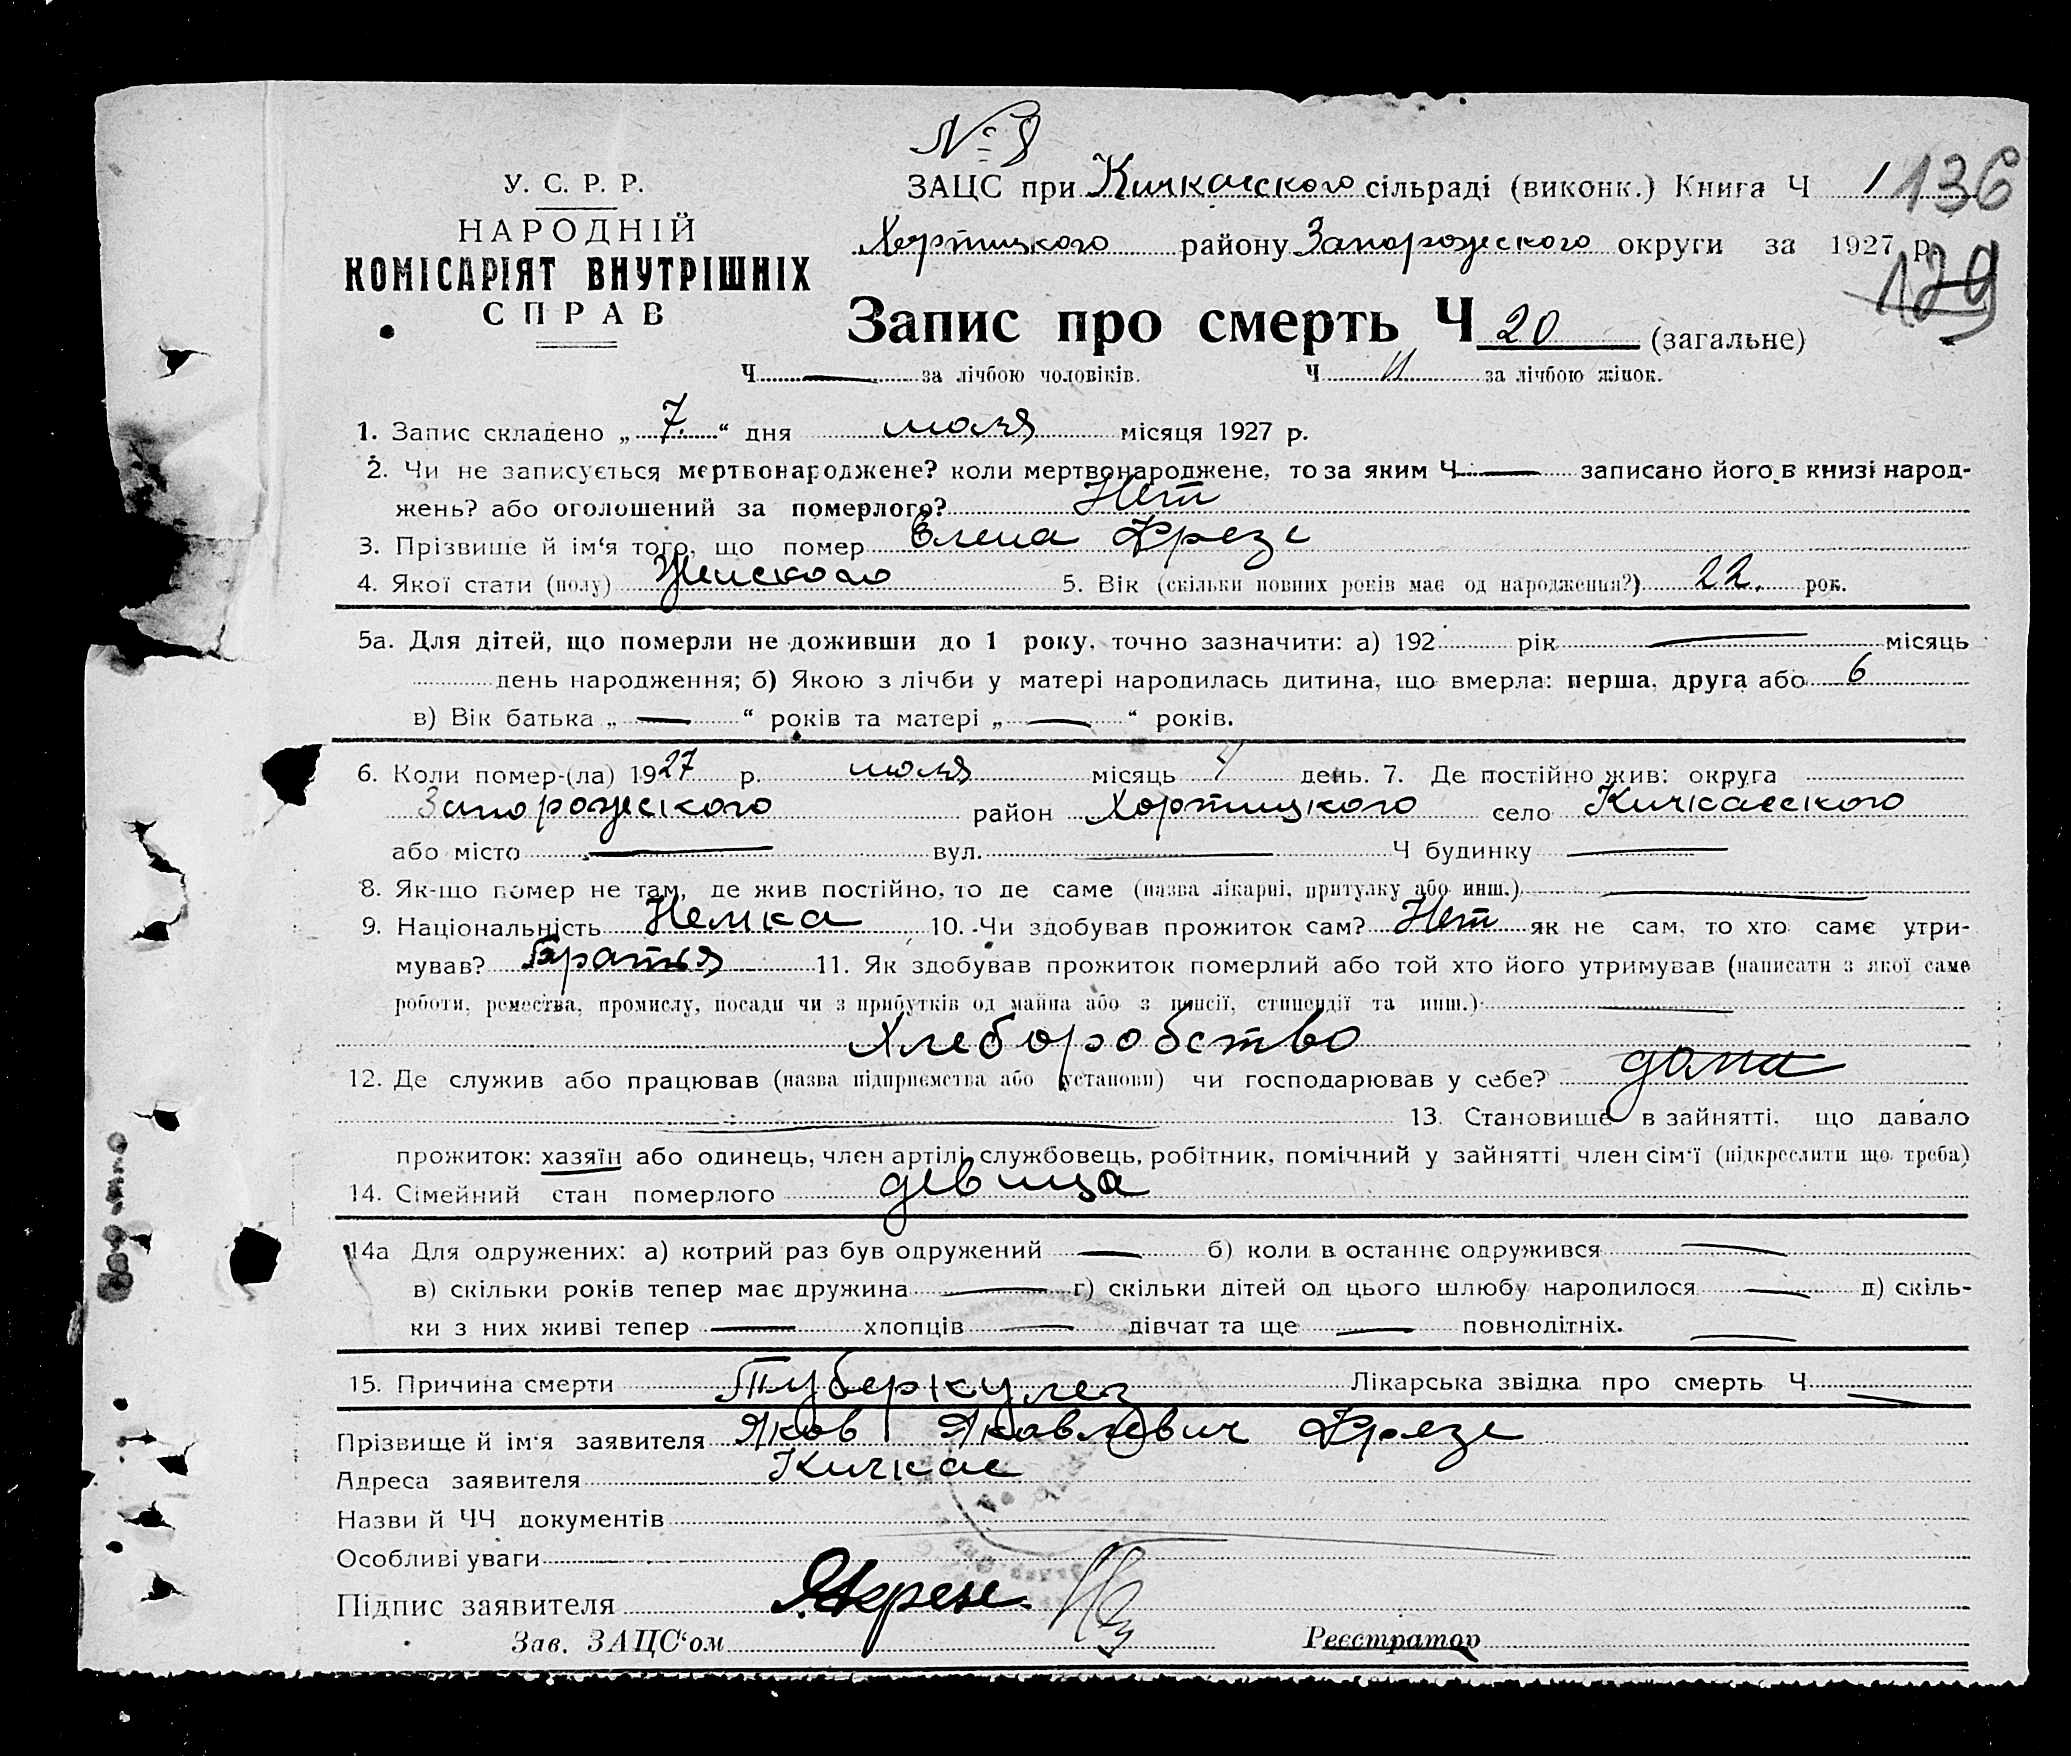 № 8
У. С. Р. Р.
НАРОДНІЙ
КОМІСАРІЯТ ВНУТРІШНІХ
СПРАВ
ЗАЦС при Кичкасского сільраді (виконк.) Книга Ч 1
136
Хортицкого району Запорожского округи за 1927 р.
129
Запис про смерть Ч 20 (загальне)
Ч — за лічбою чоловіків. Ч 11 за лічбою жінок.
1. Запис складено „ 7. “ дня июля місяця 1927 р.
2. Чи не записується мертвонароджене? коли мертвонароджене, то за яким Ч — записано його в книзі народ-
жень? або оголошений за померлого? Нет
3. Прізвище й ім‘я того, що помер Елена Фрезе
4. Якої стати (полу) Женского 5. Вік (скільки повних років має од народження?) 22. рок.
5а. Для дітей, що померли не доживши до 1 року, точно зазначити: а) 192 рік — місяць
день народження; б) Якою з лічби у матері народилась дитина, що вмерла: перша, друга або 6
в) Вік батька „ — “ років та матері „ — “ років.
6. Коли помер-(ла) 1927 р. июля місяць 4 день. 7. Де постійно жив: округа
Запорожского район Хортицкого село Кичкасского
або місто — вул. — Ч будинку —
8. Як-що помер не там, де жив постійно, то де саме (назва лікарні, притулку або инш.) —
9. Національність Немка 10. Чи здобував прожиток сам? Нет як не сам, то хто саме утри-
мував? Братья 11. Як здобував прожиток померлий або той хто його утримував (написати з якої саме
роботи, ремества, промислу, посади чи з прибутків од майна або з пенсії, стипендії та инш.) —
Хлеборобство
12. Де служив або працював (назва підприємства або установи) чи господарював у себе? дома
— 13. Становище в зайнятті, що давало
прожиток: хазяїн або одинець, член артілі, службовець, робітник, помічний у зайнятті член сім‘ї (підкреслити що треба)
14. Сімейний стан померлого девица
14а Для одружених: а) котрий раз був одружений — б) коли в останнє одружився —
в) скільки років тепер має дружина — г) скільки дітей од цього шлюбу народилося — д) скіль-
ки з них живі тепер — хлопців — дівчат та ще — повнолітніх. —
15. Причина смерти Туберкулез Лікарська звідка про смерть Ч —
Прізвище й ім‘я заявителя Яков Яковлевич Фрезе
Адреса заявителя Кичкас
Назви й ЧЧ документів
Особливі уваги —
Підпис заявителя ЯФрезе
Зав. ЗАЦС‘ом Реєстратор